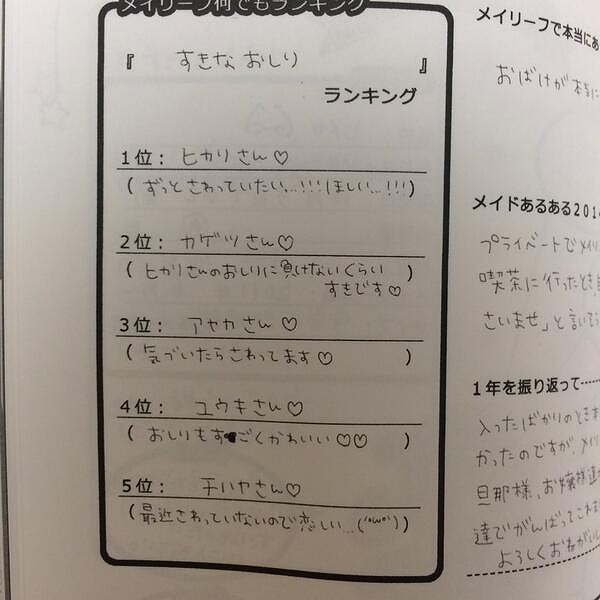 メイリーフ何でもランキング
『 すきな おしり 』
ランキング
1位: ヒカリさん♡
(ずっとさわっていたい…!!!ほしい…!!!)
2位: カゲツさん♡
(ヒカリさんのおしりに負けないくらい
すきです♡)
3位: アヤカさん♡
(気づいたらさわってます♡)
4位: ユウキさん♡
(おしりもすごくかわいい♡♡)
5位: チハヤさん♡
(最近さわっていないので恋しい…(´・ω・`))
メイリーフで本当にあ
おばけが本当に
メイドあるある201
プライベートでメイリ
喫茶に行ったとき
さいませ」と言いそう
1年を振り返って
入ったばかりのときは
かったのですが、メイリ
旦那様、お嬢様、
達でがんばってこれま
よろしくおねがいし